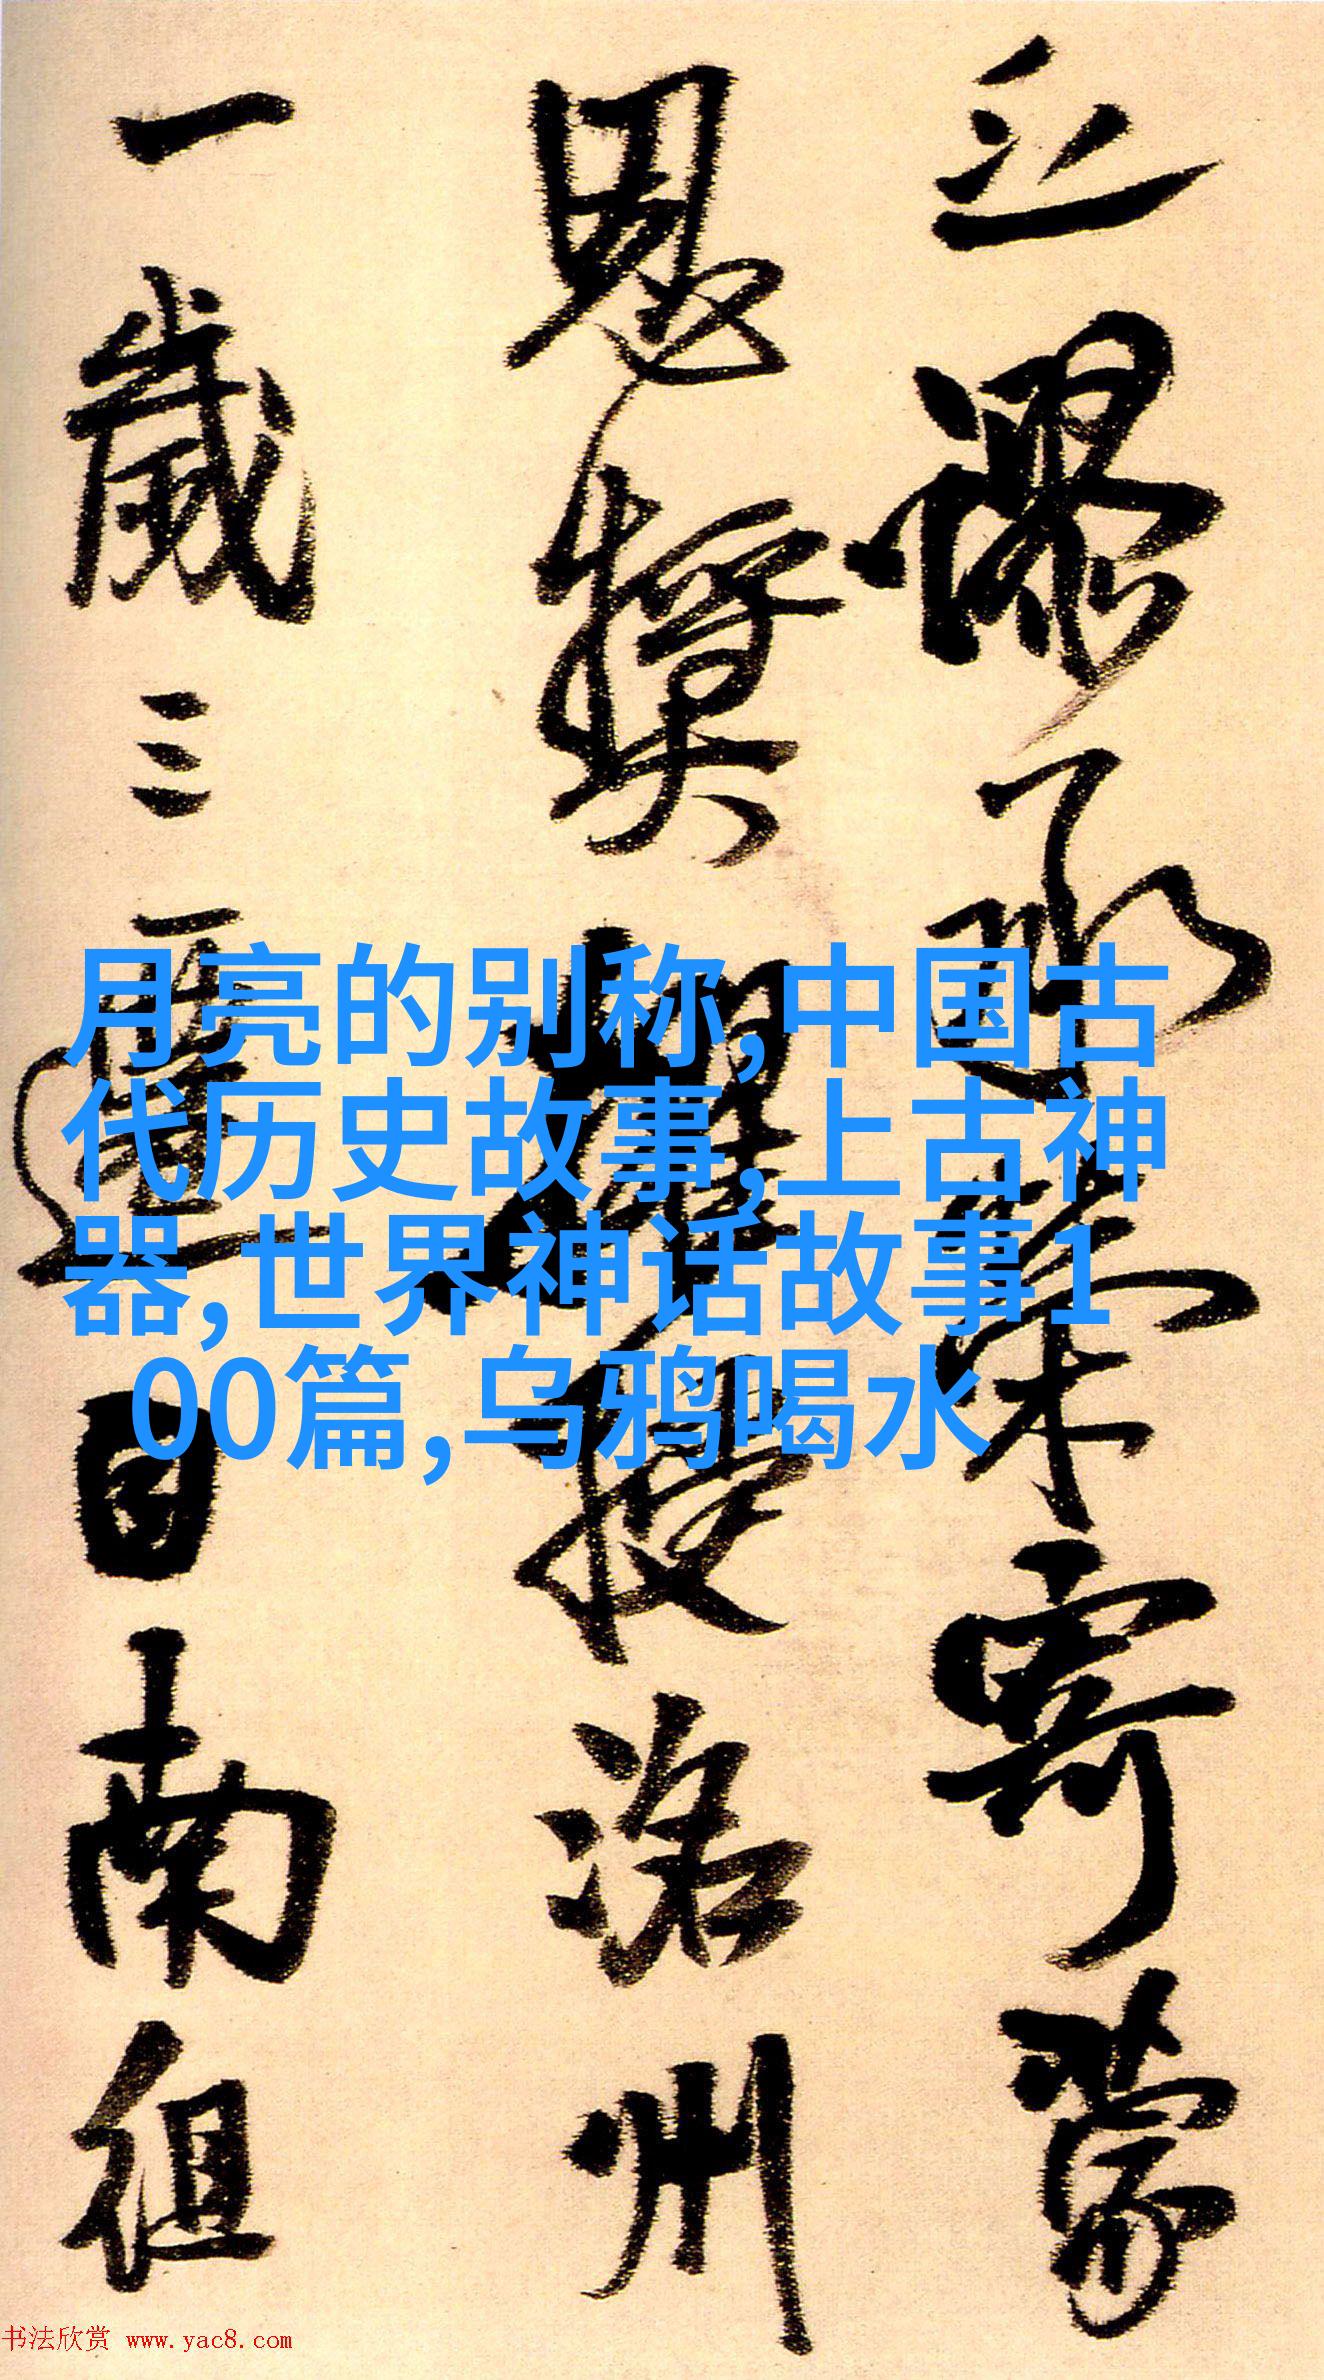 立謬承榮寄蒙
恩獎擢授洛州
一歲三遷自南徂
月亮的别称,中国古
代历史故事,上古神
器,世界神话故事1
00篇,乌鸦喝水
书法欣赏 www.yac8.com